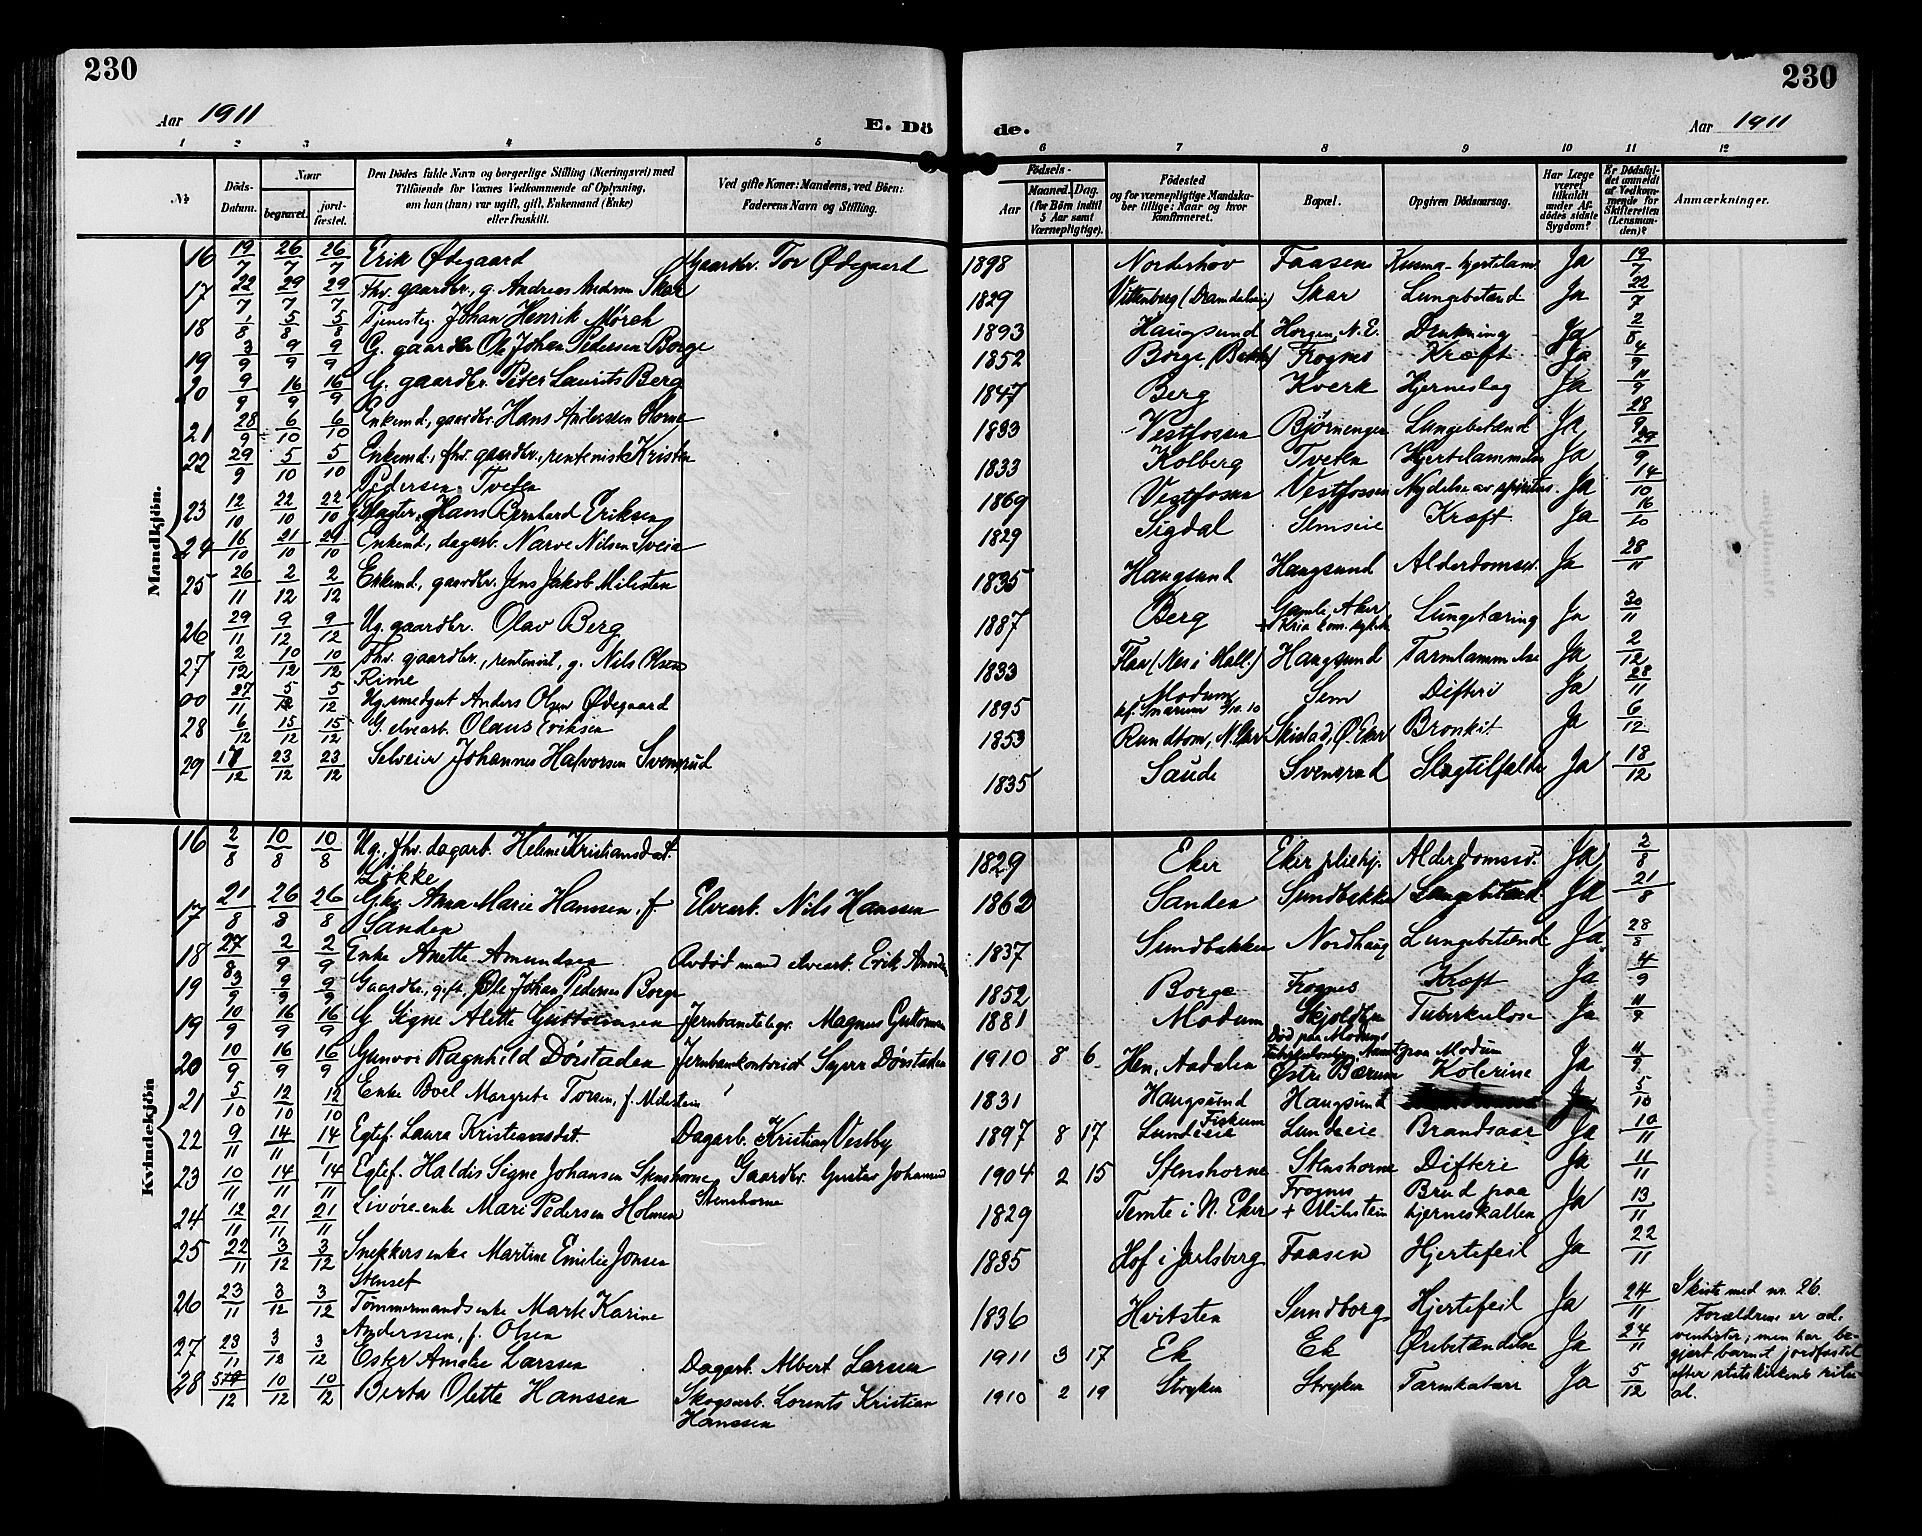 230
230
Aar 1911
E. Dö de.
Aar 1911
1 2 3 4 5 6 7 8 9 10 11 12
№ Döds-Datum. Naar begravet. jord-fæstet.
Den Dödes fulde Navn og borgerlige Stilling (Næringsvei) med
Tilföiende for Voxnes Vedkommende af Oplysning,
om han (hun) var ugift, gift, Enkemand (Enke)
eller fraskilt.
Ved gifte Koner: Mandens, ved Börn:
Faderens Navn og Stilling.
Födsels-
Aar Maaned. Dag.
(for Börn indtil
5 Aar samt
Værnepligtige).
Födested
og for værnepligtige Mandska-
ber tillige: Naar og hvor
konfirmeret.
Bopæl.
Opgiven Dödsaarsag.
Har Læge
været
tilkaldt
under Af-
dödes sidste
Sygdom?
Er Dödsfal-
det anmeldt
af Vedkom-
mende for
Skifteretten
(Lensman-
den)?
Anmærkninger.
Mandkjön.
16 19/7 26/7 26/7 Erik Ødegaard Gaardbr. Tor Ødegaard 1898 Norderhov Faasen Ja 19/7
17 22/7 29/7 29/7 Fhv. gaardbr., g. Andreas Skar 1829 Skar Lungebetænd Ja 22/7
18 1/8 5/8 5/8 Tjenesteg. Johan Henrik Mørch 1893 Haugsund Horgen, N. E. Drukning Ja
19 3/9 9/9 9/9 G. gaardbr Ole Johan Pedersen Borge 1852 Borge Frognes Kræft Ja 4/9
20 9/9 16/9 16/9 G. gaardbr. Peter Laurits Berg 1847 Berg Kverk Hjerneslag Ja 11/9
21 28/9 6/10 6/10 Enkemd, gaardbr. Hans Anderssen Horne 1833 Vestfossen Bjørnengen Lungebetænd Ja 28/9
22 29/9 5/10 5/10 Enkemd., fhv. gaardbr., rentenist Kristen
Pedersen Tveten 1833 Kolberg Tveten Hjertelammelse Ja 29/9
23 12/10 22/10 22/10 Slagter, Hans Bernhard Eriksen 1869 Vestfossen Vestfossen Nydelse av spiritus Ja 14/10
24 16/10 21/10 29/10 Enkemd, dagarb. Narve Nilsen Sveia 1829 Sigdal Semseie Kræft Ja 16/10
25 26/11 2/12 2/12 Enkemd, gaardbr. Jens Jakob Milesten 1835 Haugsund Haugsund Alderdomssv. Ja 28/11
26 29/11 9/12 9/12 Ug. gaardbr. Olav Berg 1887 Berg Gamle Aker
Lungetæring Ja 30/11
27 2/12 10/12 10/12 Fhv. gaardbr., rentenist, g. Nils Olsen
Rime 1833 Flaa (Nes i Hall.) Haugsund Tarmlammelse Ja 2/12
00 27/11 5/12 5/12 Ug. smedgut Anders Olsen Ødegaard 1895 Modum
kf. Snarum 2/10.10 Sem Difteri Ja 28/11
28 6/12 15/12 15/12 G. elvearb. Olaus Eriksen 1853 Rundtom, N. Eker Skistad, Ø. Eker Bronkit Ja 6/12
29 17/12 23/12 23/12 Selveier Johannes Halvorsen Svensrud 1835 Saude Svensrud Slagtilfælde Ja 18/12
Kvindekjön
16 2/8 10/8 10/8 Ug., fhv. dagarb. Helene Kristiansdat.
Løkke 1829 Eker Eker pleiehj. Alderdomssv. Ja 2/8
17 21/8 26/8 26/8 Gkv. Anna Marie Hanssen, f.
Sanden Elvearb. Nils Hanssen 1862 Sanden Sundbakken Lungebetænd. Ja 21/8
18 27/8 2/9 2/9 Enke Anette Amundsen Avdød mand elvearb. Erik Amundsen 1837 Sundbakken Nordhaug Lungebetænd Ja 28/8
19 3/9 9/9 9/9 Gaardbr., gift, Ole Johan Pedersen Borge 1852 Borge Frognes Kræft Ja 4/9
19 10/9 16/9 16/9 G Signe Alette Gustavsen Magnus 1881 Modum Tuberkulose Ja 11/9
Død paa Modums
20 10/9 16/9 16/9 Gunvor Ragnhild Dørstaden Jernbanekontorist Sigurr Dørstaden 1910 8 6 Hen, Aadalen Østre Bærum Kolerine Ja 11/9
21 5/10 12/10 12/10 Enke Boel Margrete Torsen, f. Milestein 1831 Haugsund Haugsund 5/10
22 9/11 14/11 14/1 Egtef. Laura Kristiansdat. Dagarb. Kristian Vestby 1897 8 17 Lundeeie Fiskum Lundeeie Brandsaar Ja 10/11
23 10/11 14/11 14/11 Egtef. Haldis Signe Johansen Stenshorne Gaardbr. Gustav Johansen
Stenshorne 1904 2 15 Stenshorne Stenshorne Difteri Ja 11/11
24 12/11 21/11 21/11 Livøre enke Mari Pedersen Holmen 1829 Temte i N. Eker Frognes
+ Milestein Brud paa
hjerneskallen Ja 13/11
25 22/11 3/12 3/12 Snekkers enke Martine Emilie Jonsen
Stenset 1835 Hof i Jarlsberg Faasen Hjertefeil Ja 22/11
26 23/11 3/12 3/12 Tømmermands enke Marte Karine
Anderssen, f. Olsen 1836 Hvitsten Sundborg Hjertefeil Ja 24/11 Skiste med nr. 26.
27 23/11 3/12 3/12 Ester Amalie Larssen Dagarb. Albert Larsen 1911 3 17 Ek Ek Ørebetændelse Ja 24/11 Forældrene er ad-
ventister, men har be-
gjært barnet jordfæstet
efter statskirkens ritu-
al.
28 5/12 10/12 10/12 Berta Olette Hanssen Skogsarb. Lorents Kristian
Hanssen 1910 2 19 Stryken Stryken Tarmkatarr Ja 5/12